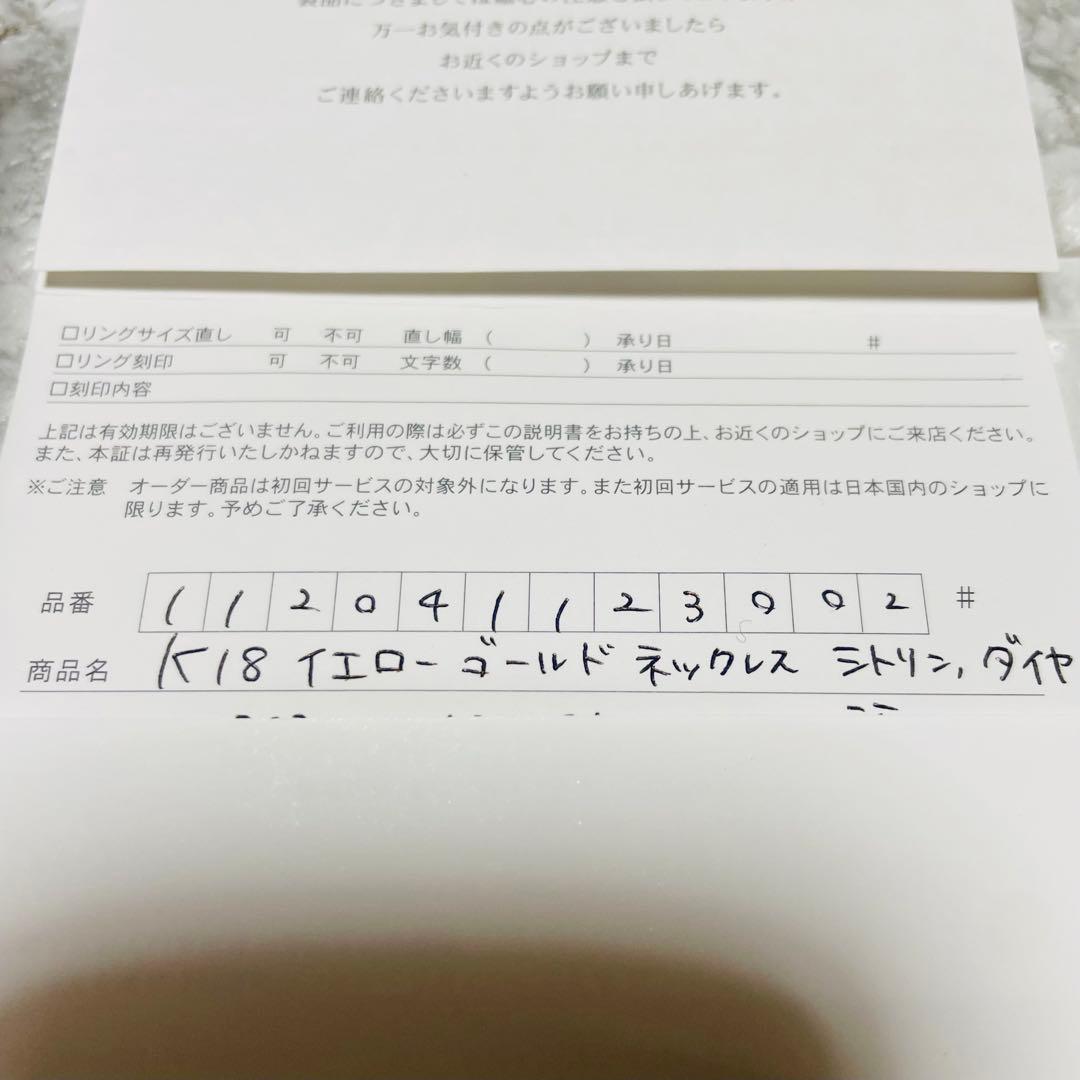 万一お気付きの点がございましたら
お近くのショップまで
ご連絡くださいますようお願い申しあげます。
□リングサイズ直し 可 不可 直し幅 ( ) 承り日 #
□リング刻印 可 不可 文字数 ( ) 承り日
□刻印内容
上記は有効期限はございません。ご利用の際は必ずこの説明書をお持ちの上、お近くのショップにご来店ください。
また、本証は再発行いたしかねますので、大切に保管してください。
※ご注意 オーダー商品は初回サービスの対象外になります。また初回サービスの適用は日本国内のショップに
限ります。予めご了承ください。
品番 112041123002 #
商品名 K18 イエローゴールド ネックレス シトリン, ダイヤ